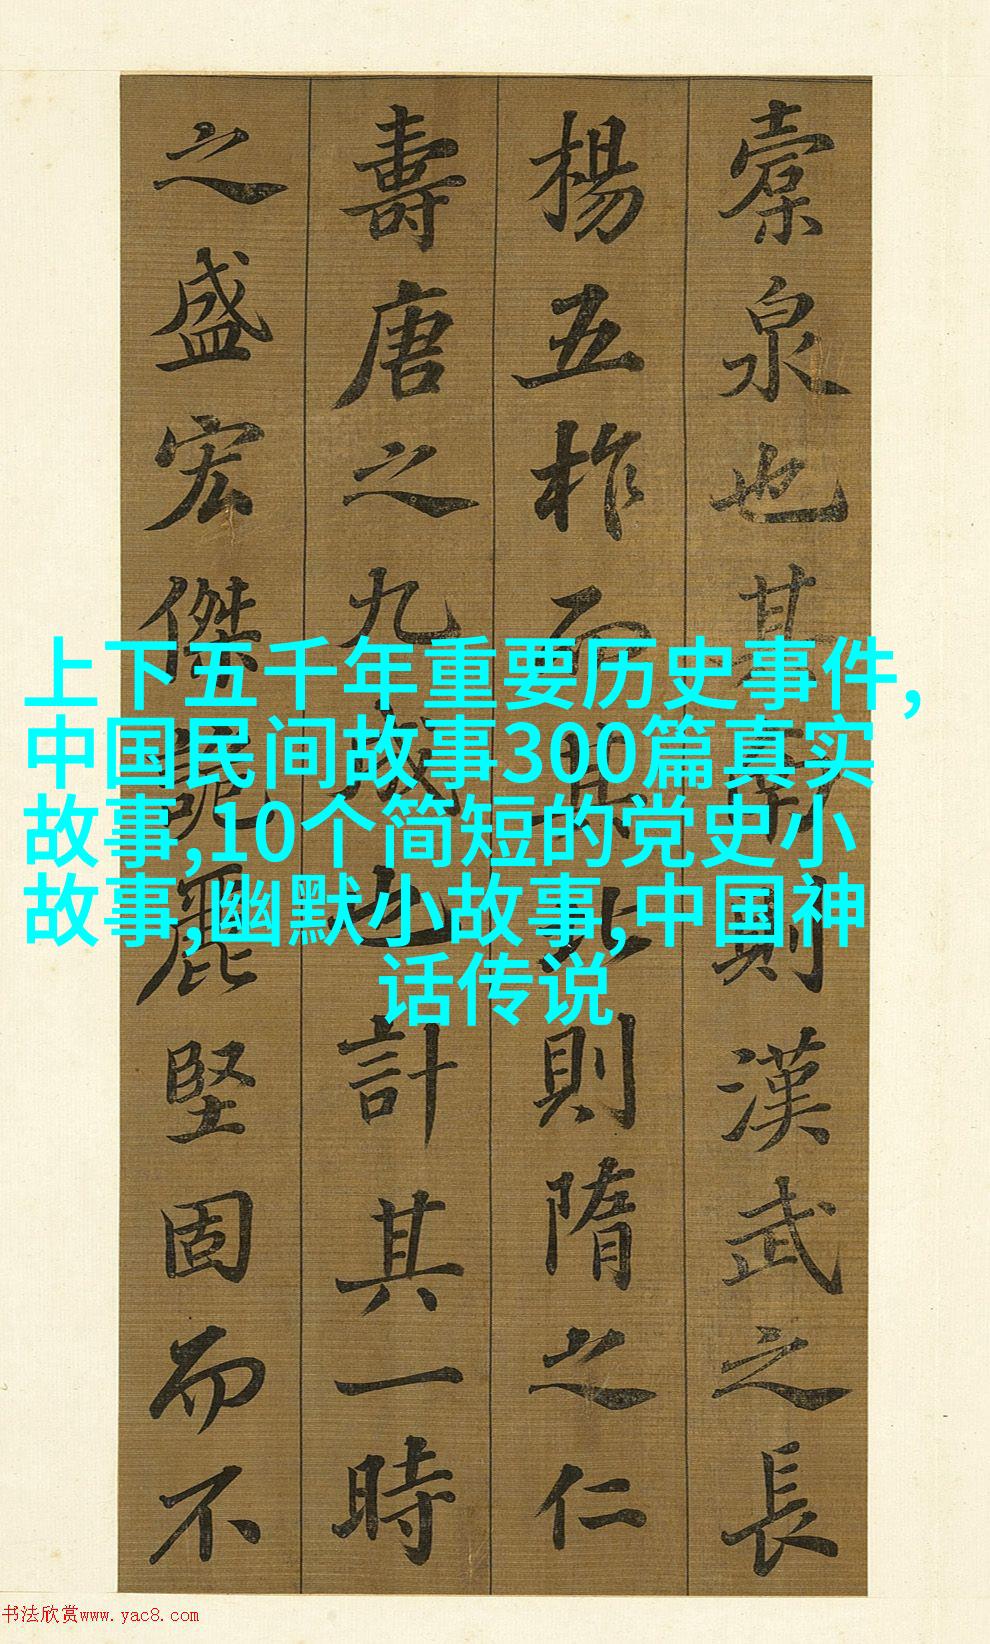 橐泉也其南則漢武之長
楊五柞而其北則隋之仁
壽唐之九成也計其一時
之盛宏傑詭麗堅固而不
上下五千年重要历史事件,
中国民间故事300篇真实
故事,10个简短的党史小
故事,幽默小故事,中国神
话传说
书法欣赏www.yac8.com